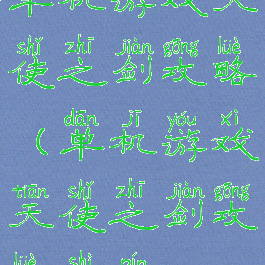 单机游戏天
shǐ zhī jiàn gōng lüè
使之剑攻略
dān jī yóu xì
(单机游戏
tiān shǐ zhī jiàn gōng
天使之剑攻
lüè shì pín